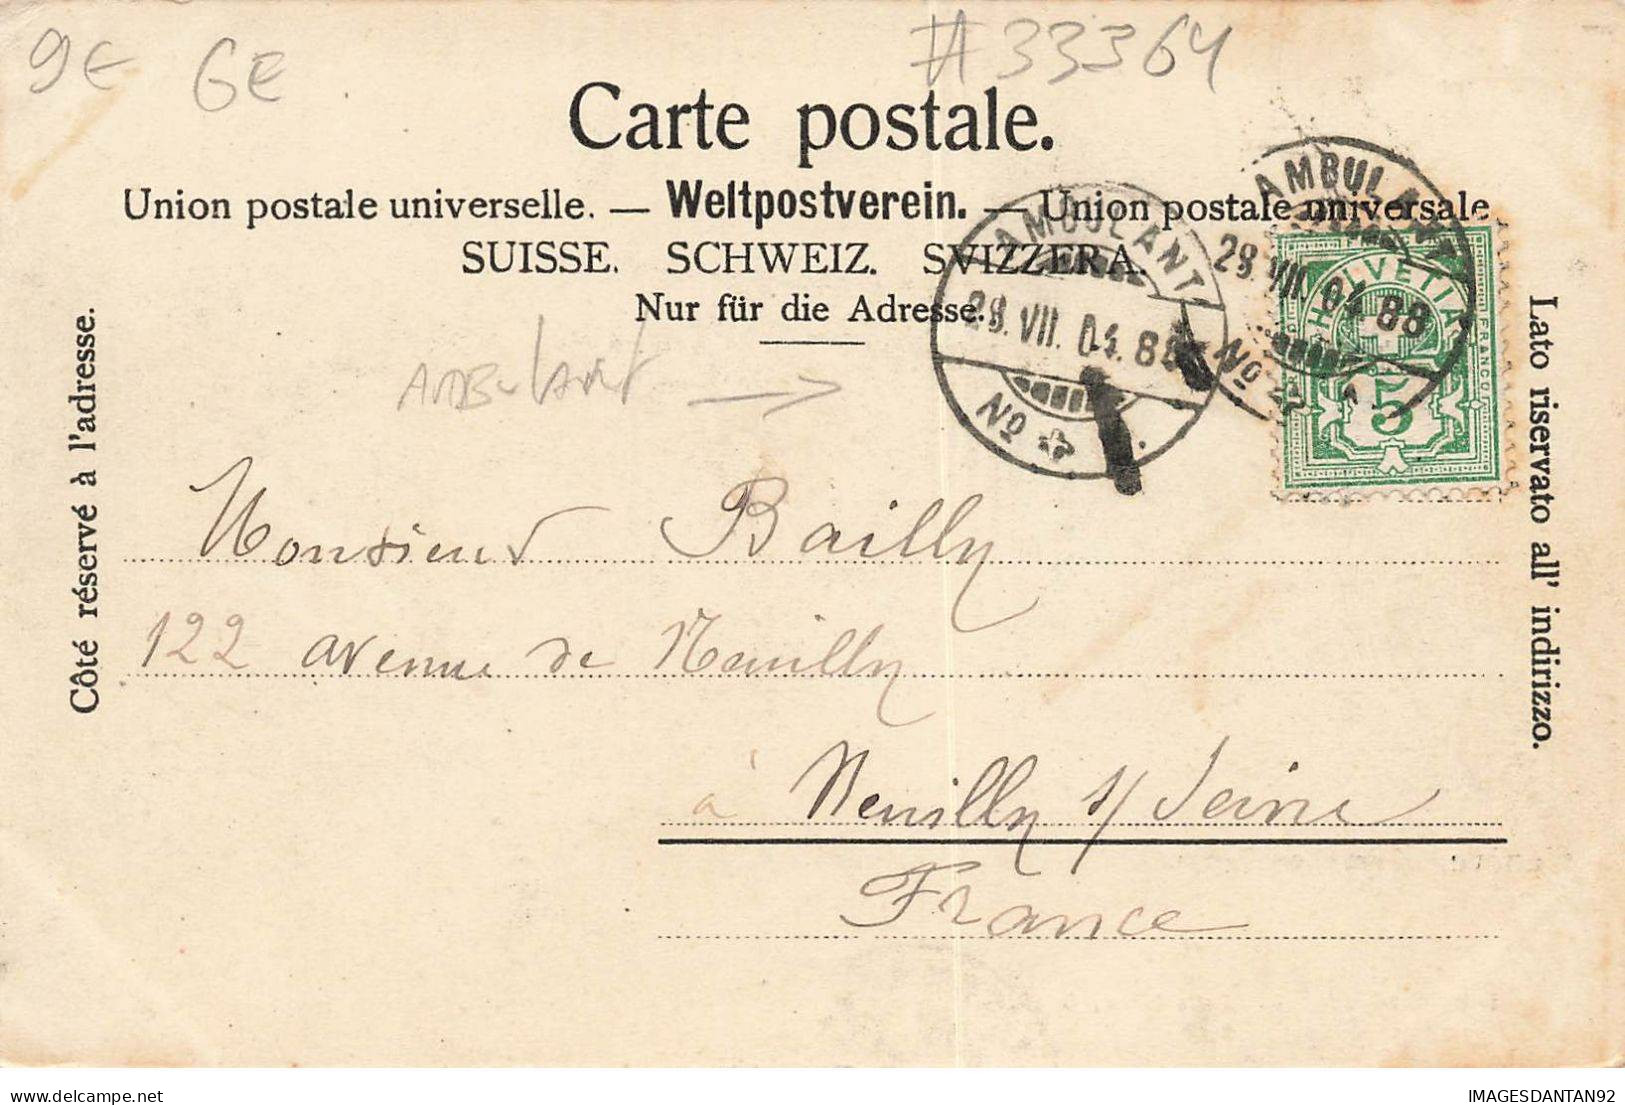 9€ 6€ #33364
Carte postale.
Union postale universelle. — Weltpostverein. — Union postale universale
SUISSE. SCHWEIZ. SVIZZERA.
Nur für die Adresse.
AMBULANT
28. VII. 04. 88
No
AMBULANT
28. VII. 04. 88
No
HELVETIA
FRANCO
5
Ambulant →
Côté réservé à l'adresse.
Lato riservato all' indirizzo.
Monsieur Bailly
122 avenue de Neuilly
à Neuilly s/ Seine
France
IMAGESDANTAN92